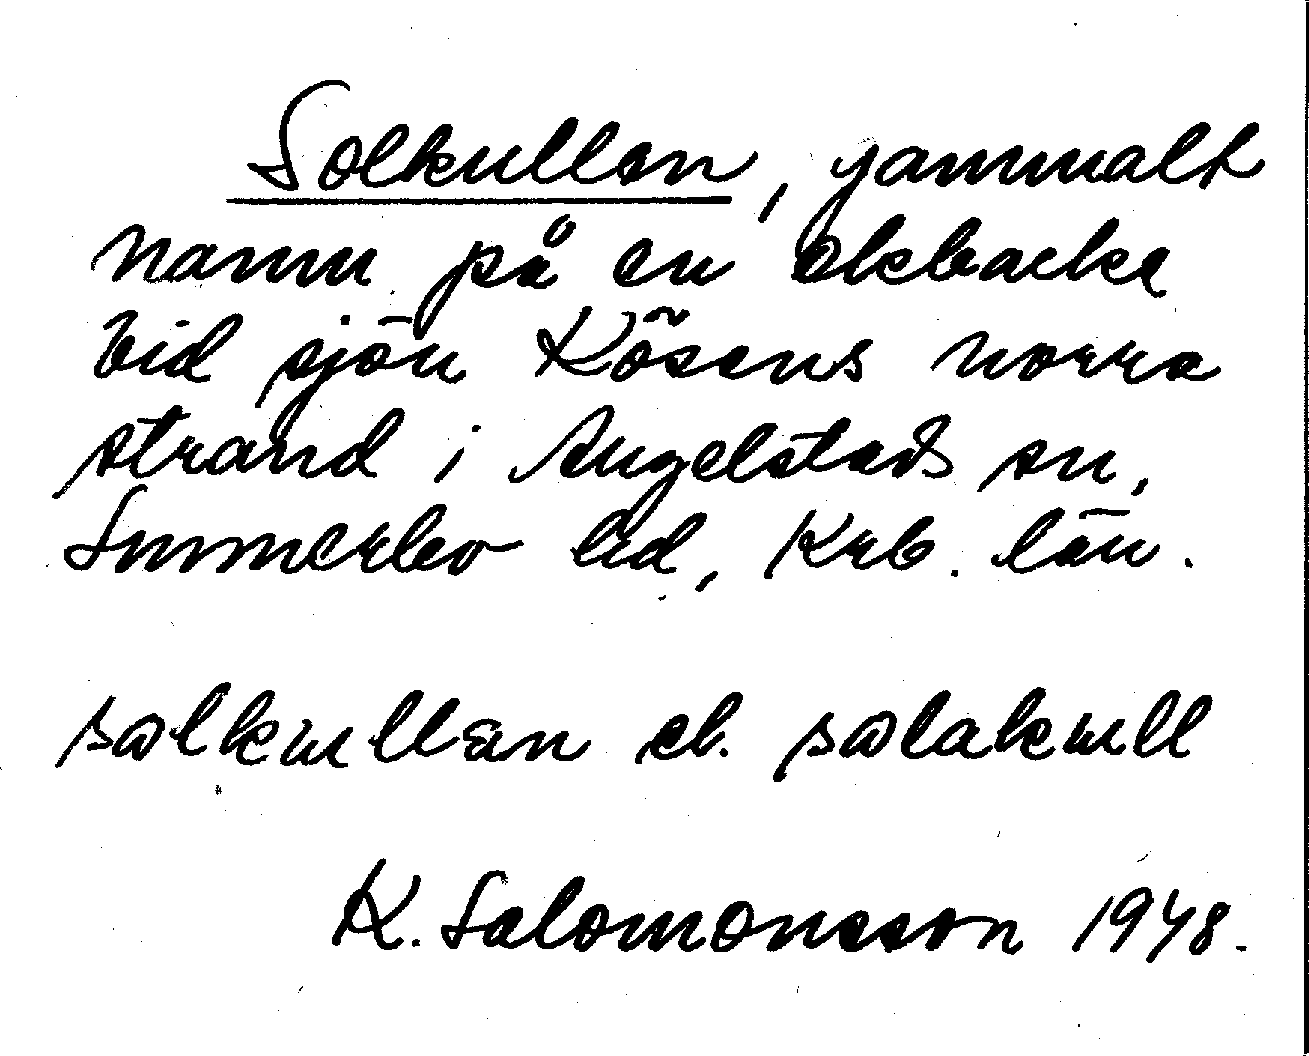 Solkullen, gammalt
namn på en ekbacke
vid sjön Kösens norra
strand i Angelstads sn,
Sunnerbo hd, Krb. län.
sɷlkullän el. sɷlakull
K. Salomonsson 1948.